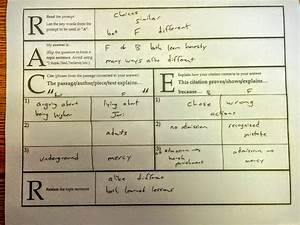 R
Read the prompt
List the key words from the prompt to be used in "A"
choices
similar
but F different
A
My answer is...
Flip the question to form a topic sentence. Avoid using
F & B both learn honesty
many ways also different
C
Cite (phrases from the passage connected to your answer)
The passage/author/piece/text explains...
B F
E
Explain how your citation connects to your answer
This citation proves/shows/explains...
because... B F
1)
angry about
being
lying about
Jar:
1)
chose wrong
actions
2)
admits
2)
no admission
recognized
mistake
3)
underground
mercy
3)
no
harsh
punishment
admission →
mercy
R
Restate the topic sentence
alike different
both learned lessons